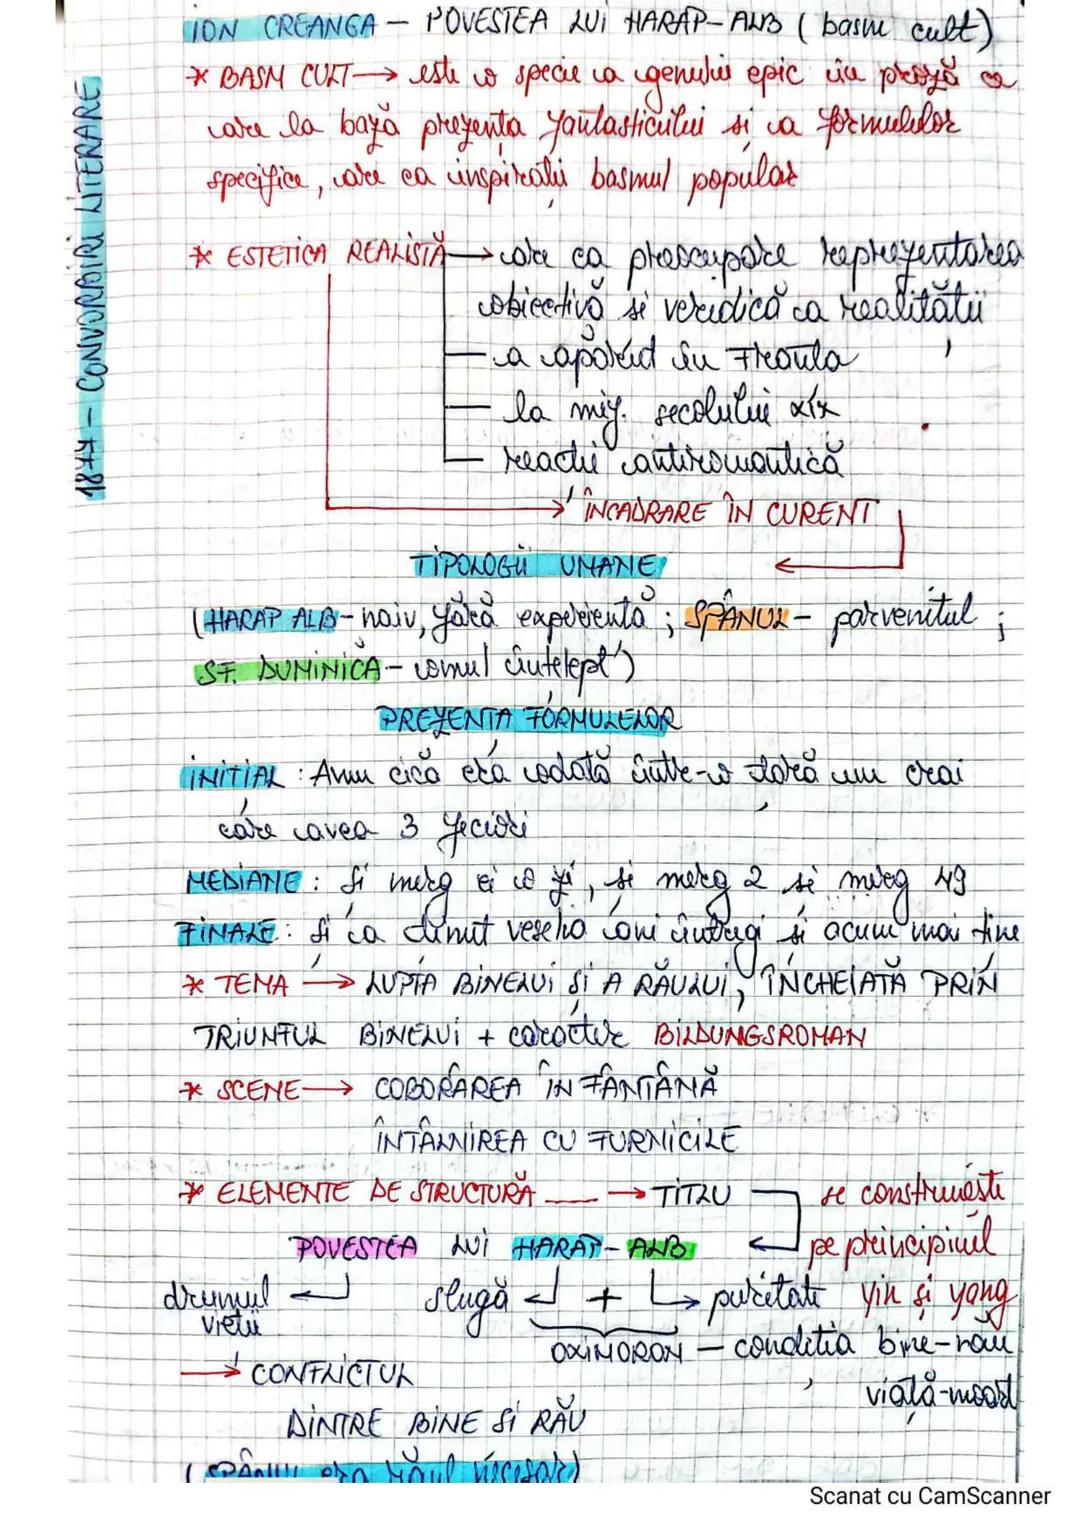 ION CREANGA - POVESTEA LUI HARAP-ALB ( basm cult)
1877 - CONVORBIRI LITERARE
* BASM CULT → este o specie a genului epic în proză ce
are la bază prezența fantasticului și a formulelor
specifice, are ca inspirație basmul popular
* ESTETICA REALISTĂ → are ca preocupare reprezentarea
obiectivă și veridică a realității
- a apărut în Franța
- la mij. secolului XIX
- reacție antiromantică
→ ÎNCADRARE ÎN CURENT
TIPOLOGII UMANE
(HARAP ALB - naiv, fără experiență ; SPÂNUL - parvenitul ;
SF. DUMINICĂ - omul înțelept)
PREZENȚA FORMULELOR
INIȚIAL : Amu cică era odată într-o țară un crai
care avea 3 feciori
MEDIANE : Și merg ei o zi, și merg 2 și merg 49
FINALE : Și a ținut veselia ani întregi și acum mai ține
* TEMA → LUPTA BINELUI ȘI A RĂULUI, ÎNCHEIATĂ PRIN
TRIUNFUL BINELUI + caracter BILDUNGSROMAN
* SCENE → COBORÂREA ÎN FÂNTÂNĂ
ÎNTÂLNIREA CU FURNICILE
* ELEMENTE DE STRUCTURĂ → TITLU
se construiește
pe principiul
yin și yang
POVESTEA LUI HARAP-ALB
drumul vieții
slugă + puritate
OXIMORON - condiția bine-rău
viață-moarte
→ CONFLICTUL
DINTRE BINE ȘI RĂU
( SPÂNUL era răul necesar)
Scanat cu CamScanner